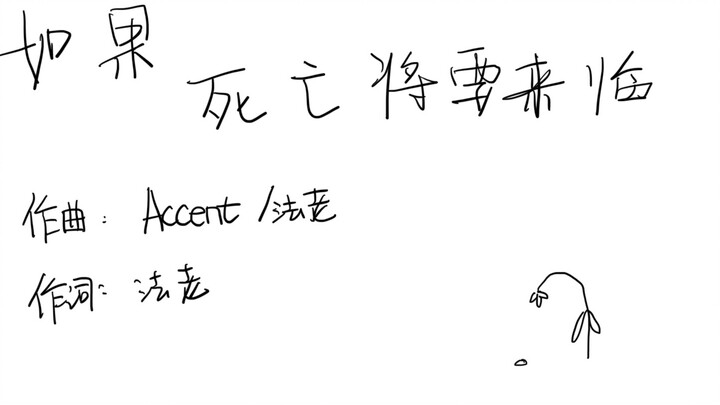 如果
死亡将要来临
作曲: Accent/法老
作词: 法老